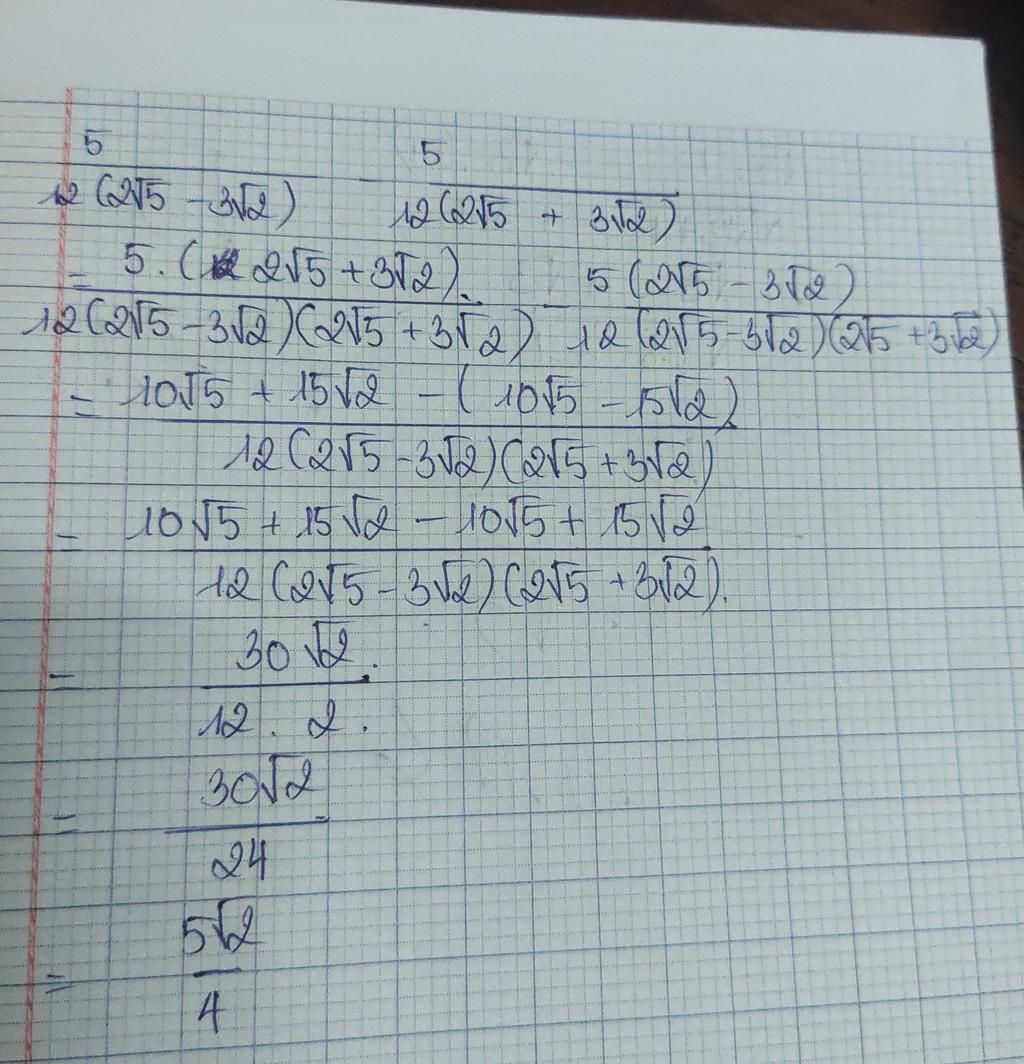 5 5
12(2√5 - 3√2) - 12(2√5 + 3√2)
= 5.(2√5 + 3√2). - 5(2√5 - 3√2)
12(2√5 - 3√2)(2√5 + 3√2) 12(2√5 - 3√2)(2√5 + 3√2)
= 10√5 + 15√2 - (10√5 - 15√2)
12(2√5 - 3√2)(2√5 + 3√2)
= 10√5 + 15√2 - 10√5 + 15√2
12(2√5 - 3√2)(2√5 + 3√2).
= 30√2.
12 . 2 .
= 30√2
24
= 5√2
4